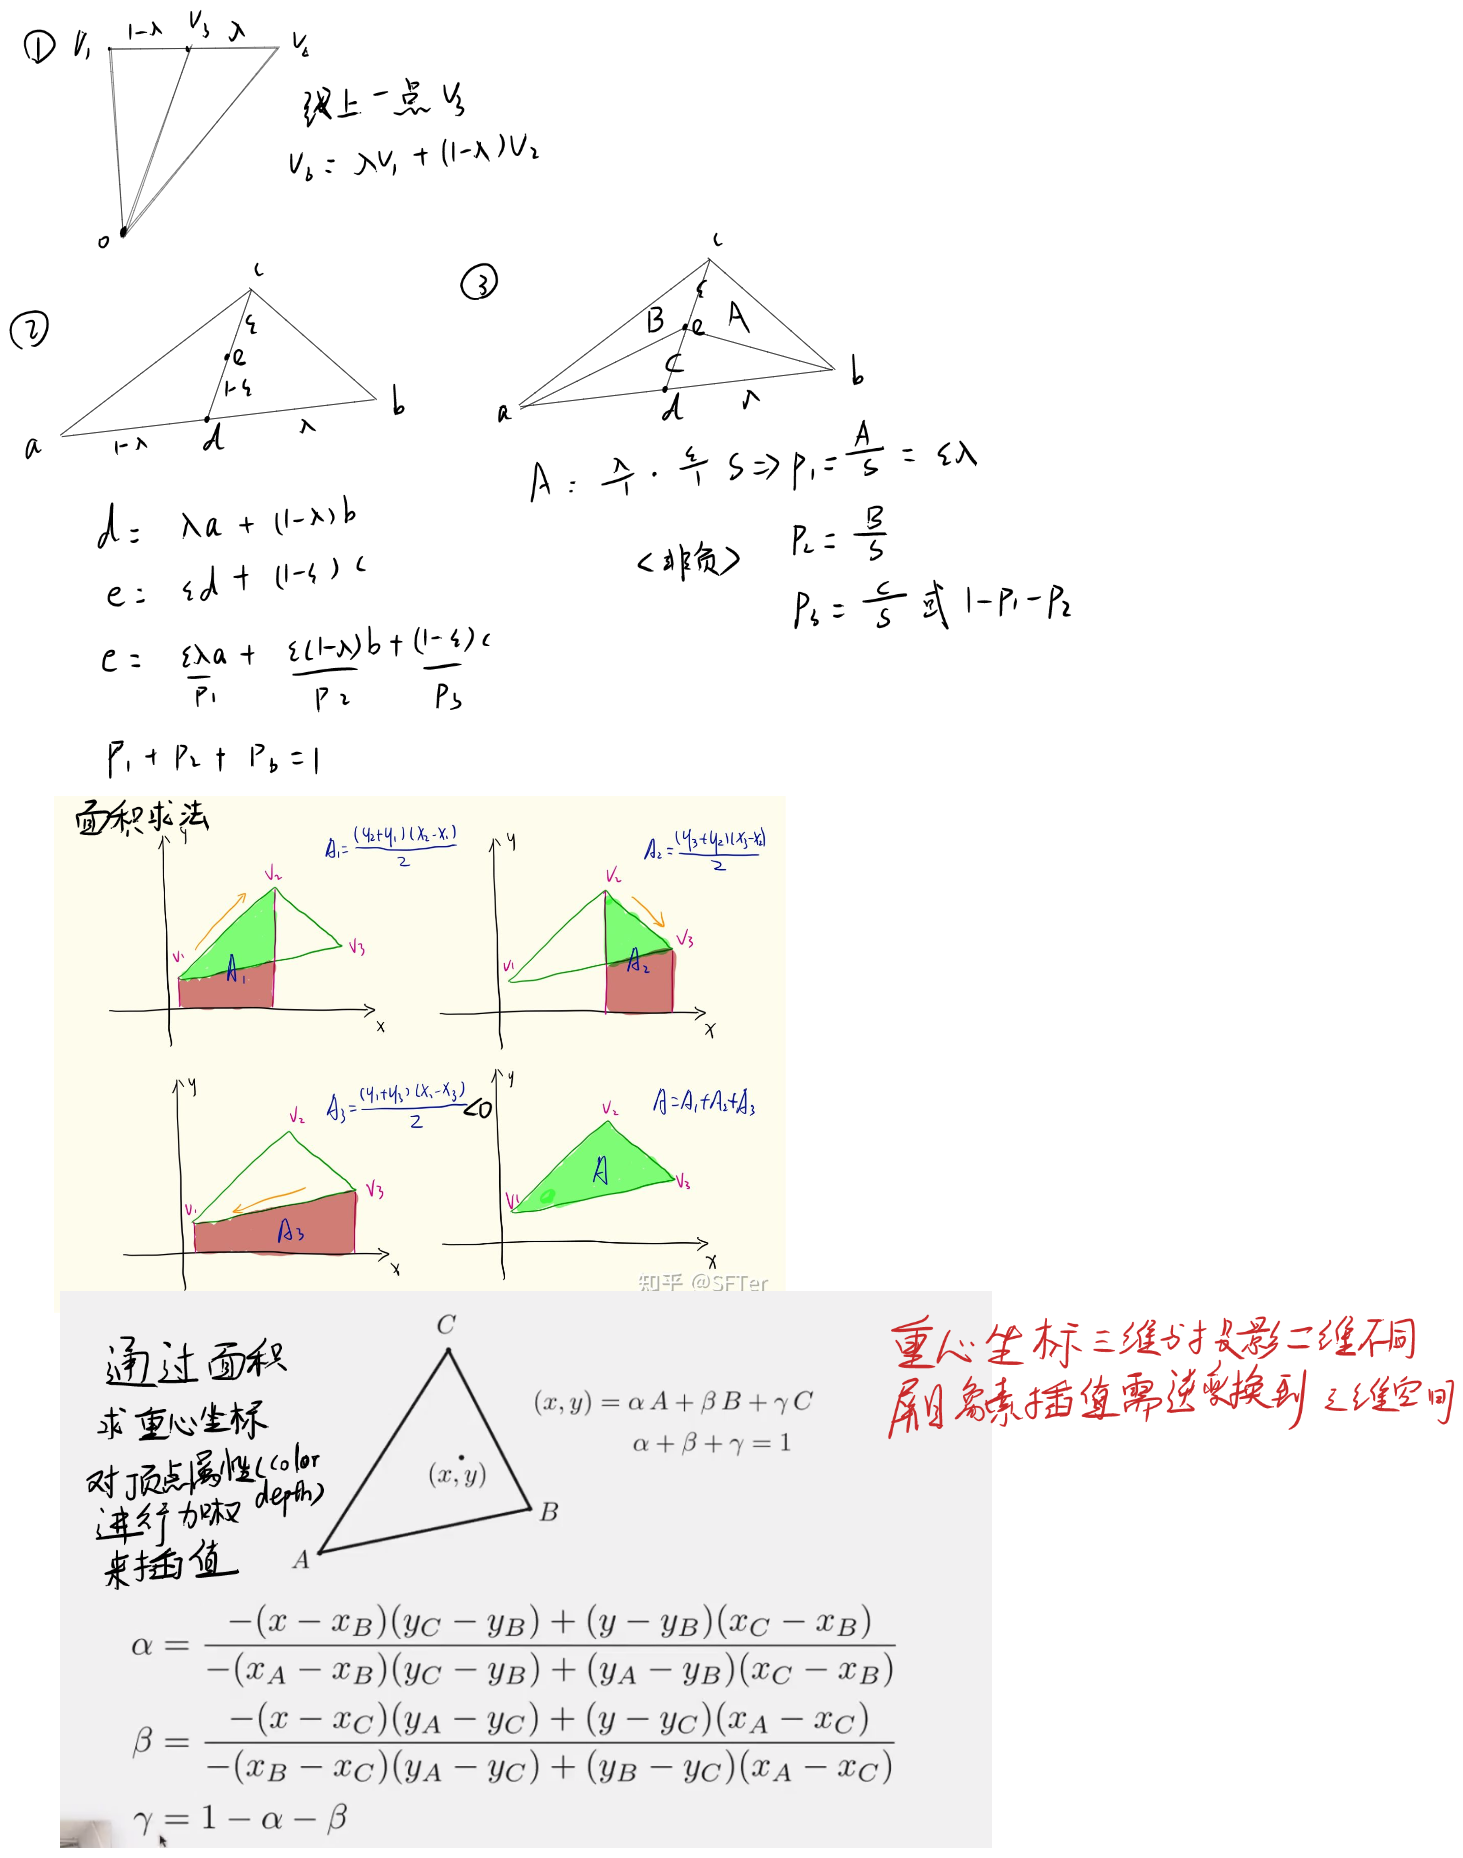 ① V₁ 1-λ V₃ λ V₂
线上一点 V₃
V₃ = λV₁ + (1-λ)V₂
o
②
c
ξ
e
1-ξ
a 1-λ d λ b
d = λa + (1-λ)b
e = ξd + (1-ξ)c
e = ξλa + ξ(1-λ)b + (1-ξ)c
P₁ P₂ P₃
P₁ + P₂ + P₃ = 1
③
c
ξ
B e A
C
a d λ b
A = λ/1 · ξ/1 S ⇒ P₁ = A/S = ξλ
<非负> P₂ = B/S
P₃ = C/S 或 1-P₁-P₂
面积求法
y A₁ = (y₂+y₁)(x₂-x₁)/2
V₂
V₁ V₃
A₁
x
y A₂ = (y₃+y₂)(x₃-x₂)/2
V₂
V₁ V₃
A₂
x
y A₃ = (y₁+y₃)(x₁-x₃)/2 <0
V₂
V₁ V₃
A₃
x
y A = A₁+A₂+A₃
V₂
V₁ V₃
A
x
知乎 @SFTer
通过面积
求重心坐标
对顶点属性(color
depth)
进行加权
来插值
C
(x, y)
B
A
(x, y) = α A + β B + γ C
α + β + γ = 1
重心坐标三维与投影二维不同
屏目象素插值需逆变换到三维空间
α = (-(x - x_B)(y_C - y_B) + (y - y_B)(x_C - x_B)) / (-(x_A - x_B)(y_C - y_B) + (y_A - y_B)(x_C - x_B))
β = (-(x - x_C)(y_A - y_C) + (y - y_C)(x_A - x_C)) / (-(x_B - x_C)(y_A - y_C) + (y_B - y_C)(x_A - x_C))
γ = 1 - α - β